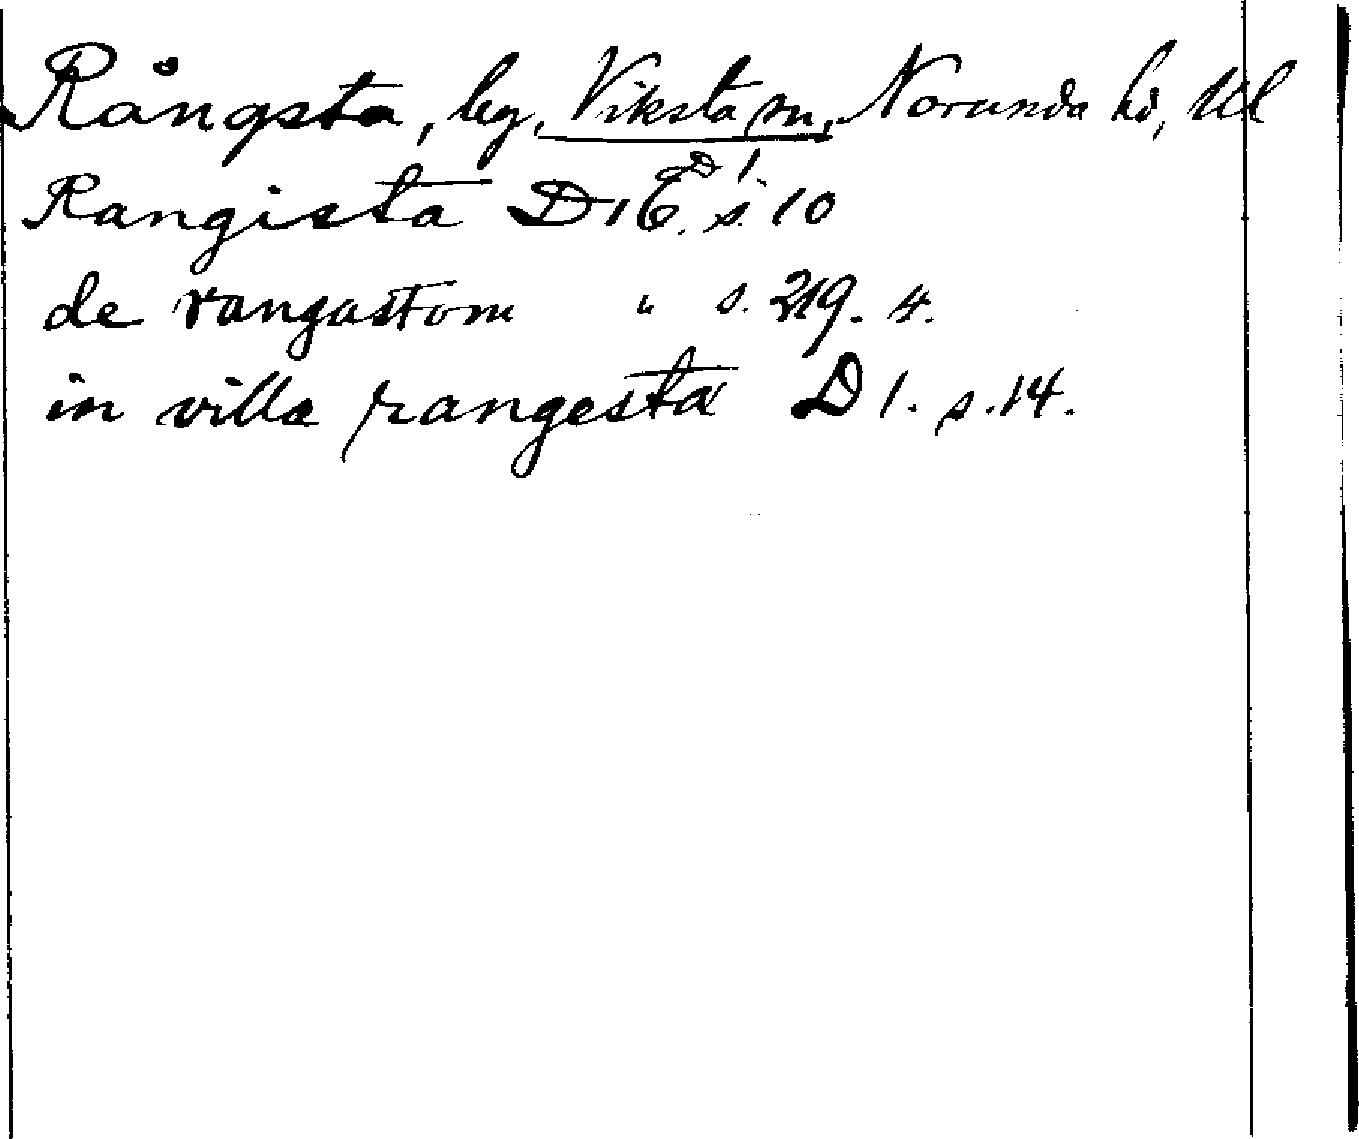 Rångsta, by, Viksta sn, Norunda hd, Upl
Rangista D16. D1. s. 10
de rangastom " s. 219. 4.
in villa rangesta D 1. s. 14.